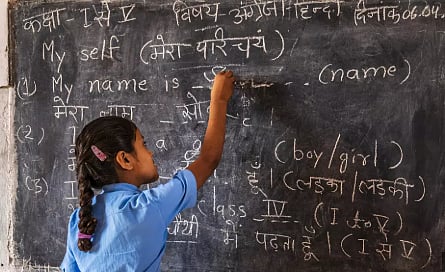 कक्षा - I से V विषय - अंग्रेजी - हिन्दी दिनांक 06.04
My self (मेरा परिचय)
(1) My name is (name)
मेरा नाम
(2) I a (boy/girl)
हूँ। (लड़का/लड़की)
(3) I class IV (I to V)
में पढ़ता हूँ। (I से V)